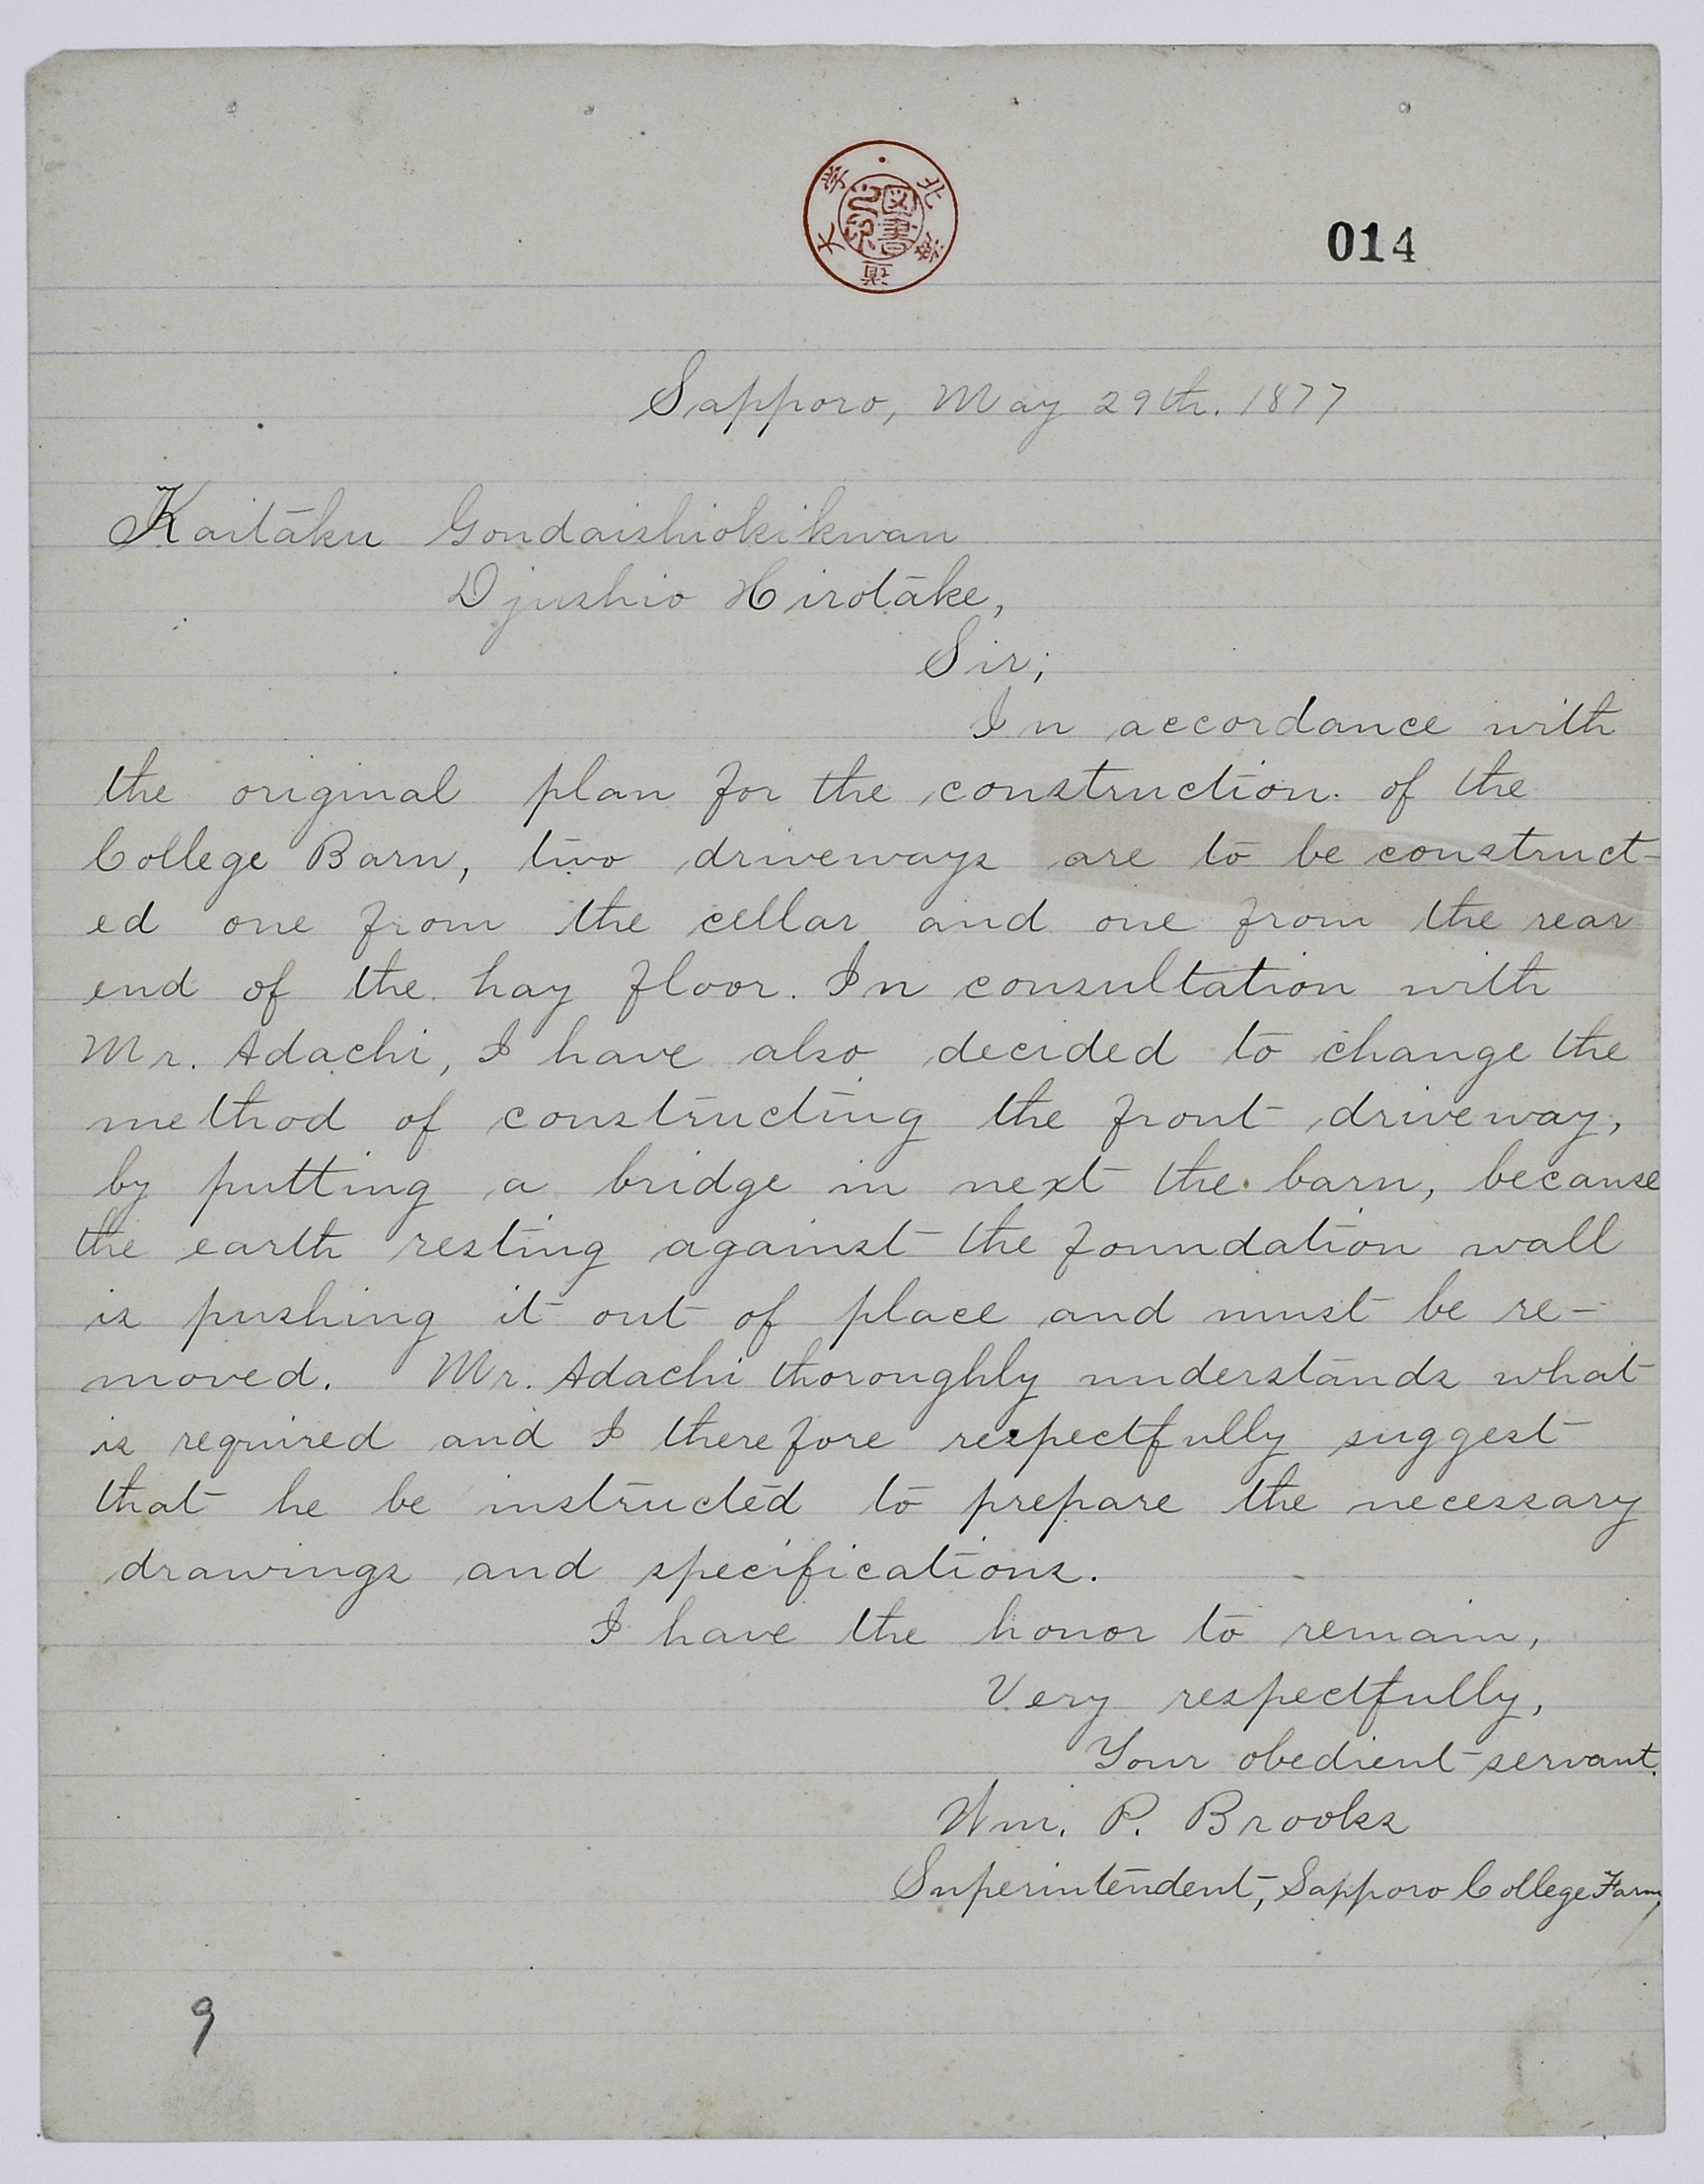 北海道大学
図書之印
014
Sapporo, May 29th. 1877
Kaitāku Gondaishiokikwan
Djushio Hirotāke,
Sir;
In accordance with
the original plan for the construction. of the
College Barn, two driveways are to be construct-
ed one from the cellar and one from the rear
end of the hay floor. In consultation with
Mr. Adachi, I have also decided to change the
method of constructing the front driveway,
by putting a bridge in next the barn, because
the earth resting against the foundation wall
is pushing it out of place and must be re-
moved. Mr. Adachi thoroughly understands what
is required and I therefore respectfully suggest
that he be instructed to prepare the necessary
drawings and specifications.
I have the honor to remain,
Very respectfully,
Your obedient servant.
Wm. P. Brooks
Superintendent, Sapporo College Farm,
9